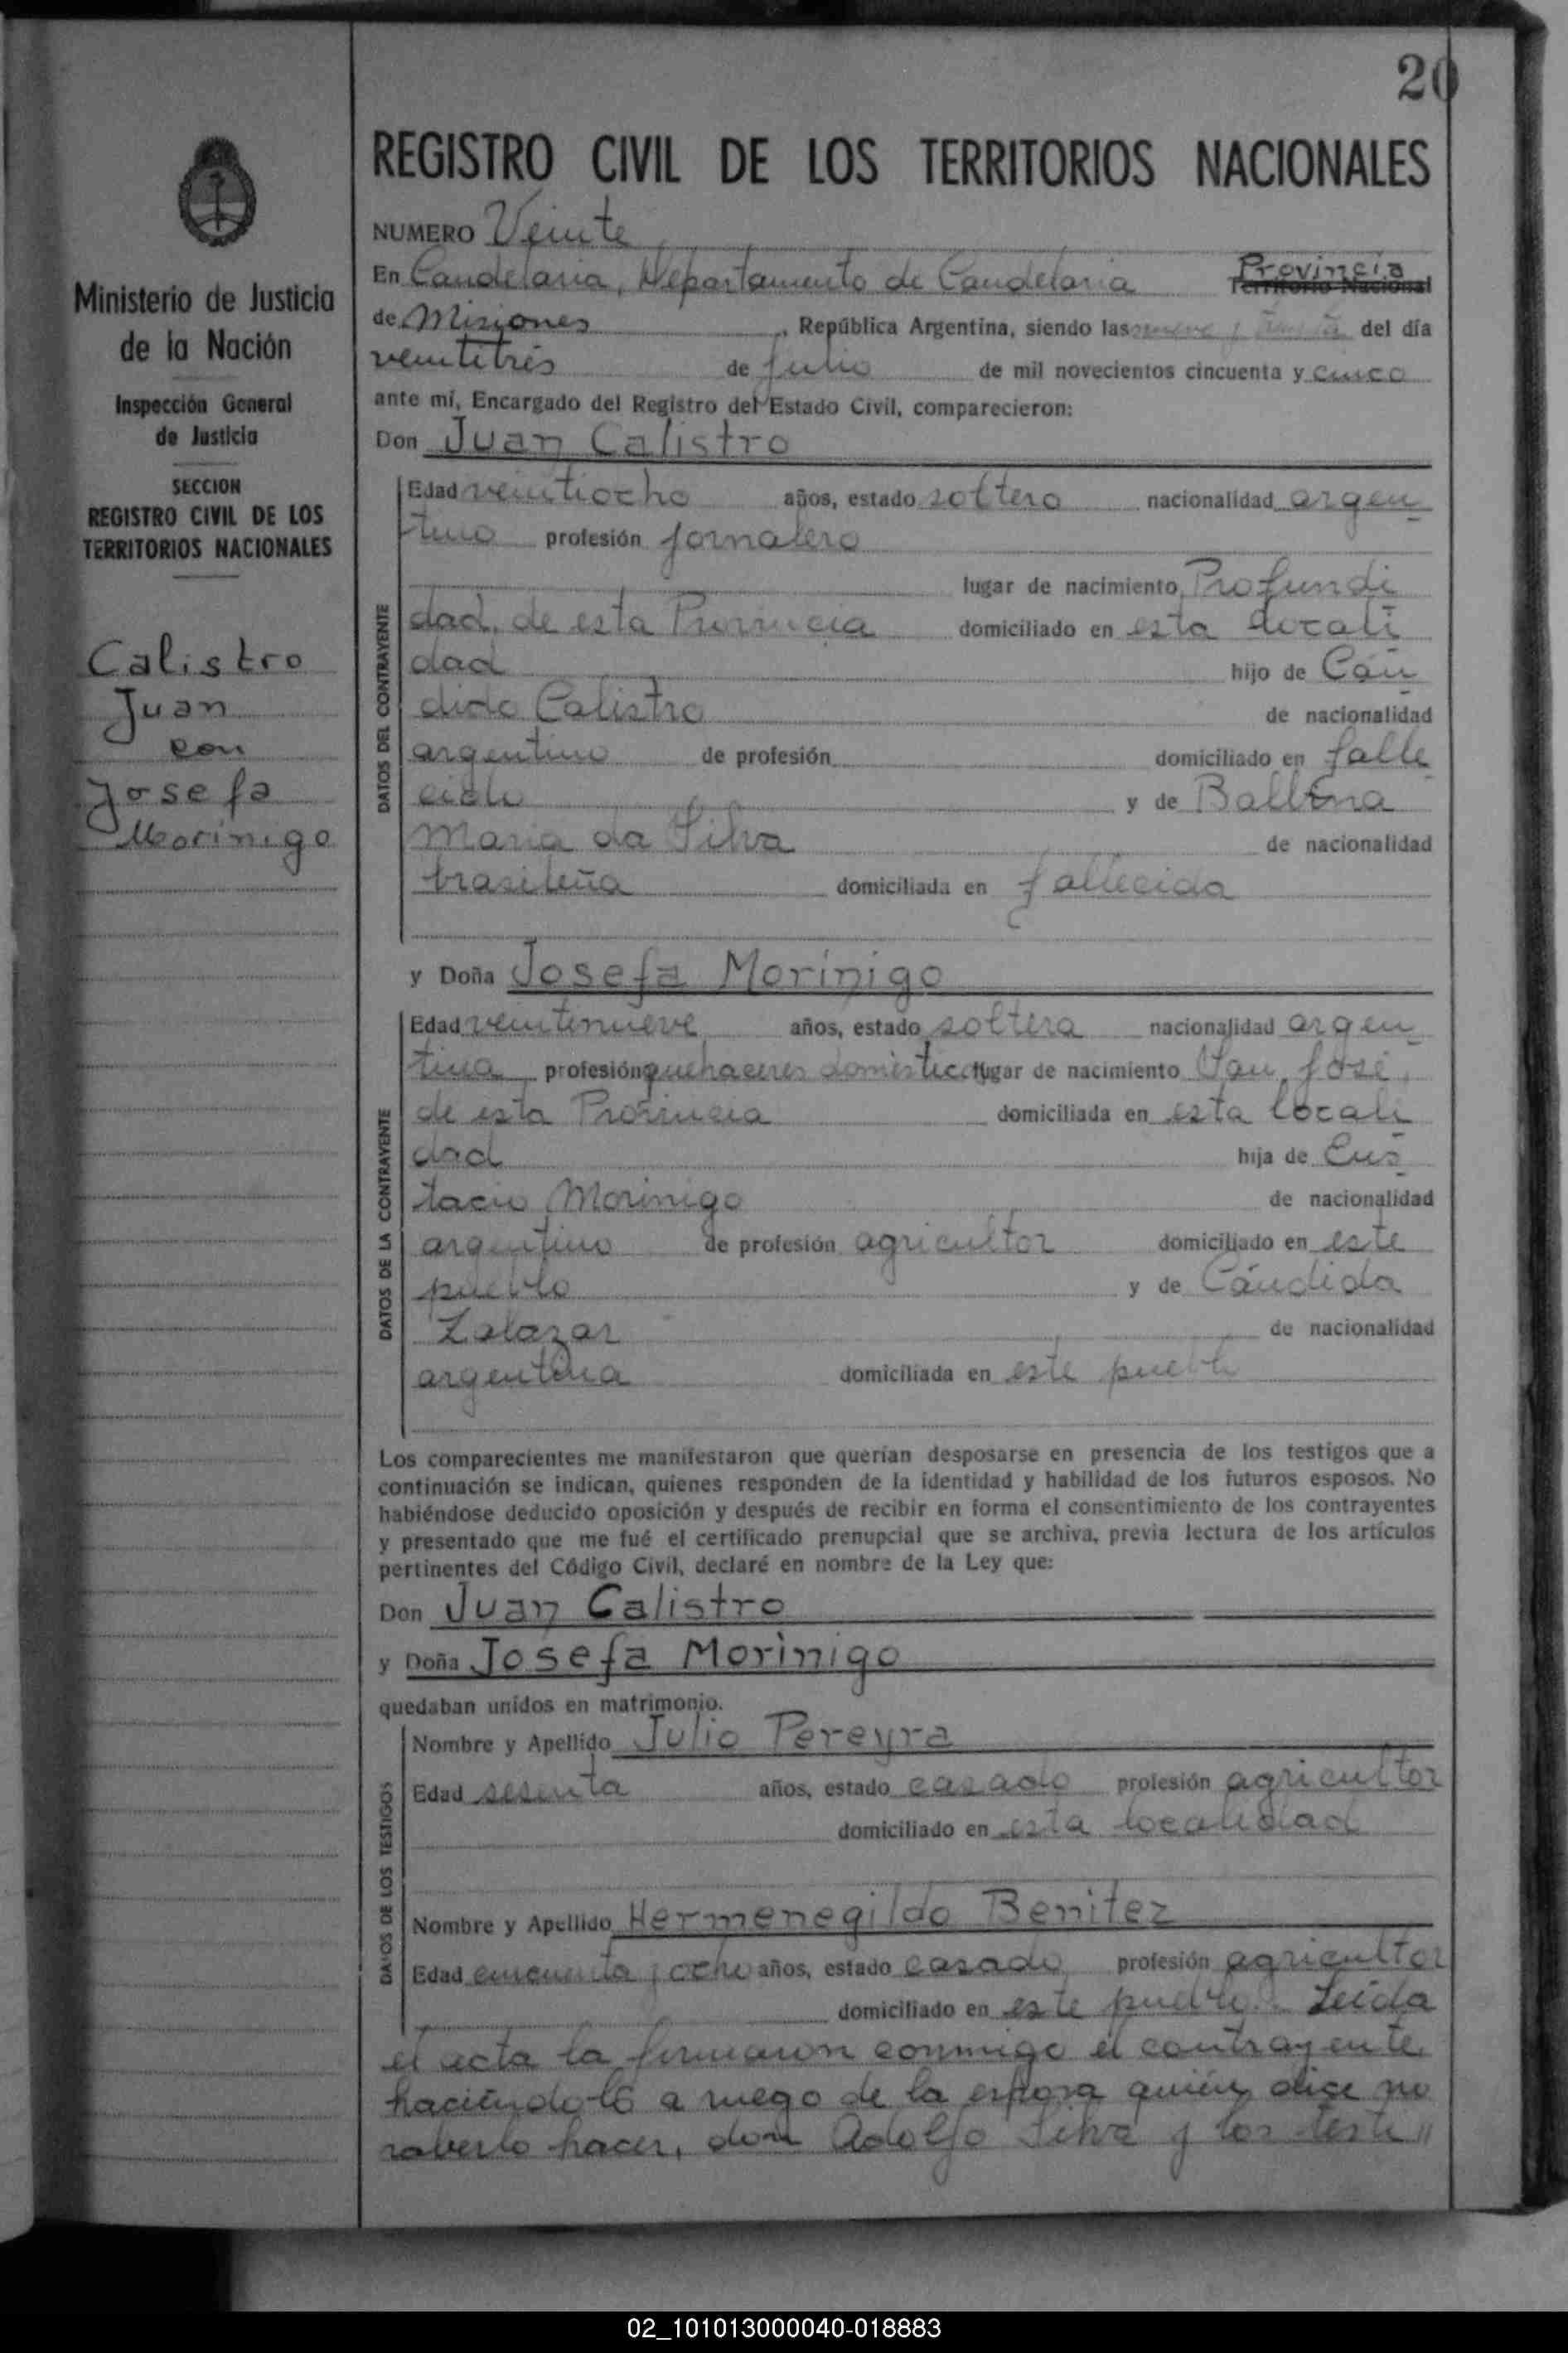 20
Ministerio de Justicia
de la Nación
Inspección General
de Justicia
SECCION
REGISTRO CIVIL DE LOS
TERRITORIOS NACIONALES
Calistro
Juan
con
Josefa
Morínigo
REGISTRO CIVIL DE LOS TERRITORIOS NACIONALES
NUMERO Veinte
En Candelaria, Departamento de Candelaria Provincia Territorio Nacional
de Misiones, República Argentina, siendo las nueve y treinta del día
veintitrés de julio de mil novecientos cincuenta y cinco
ante mí, Encargado del Registro del Estado Civil, comparecieron:
Don Juan Calistro
DATOS DEL CONTRAYENTE
Edad veintiocho años, estado soltero nacionalidad argen
tino profesión jornalero
lugar de nacimiento Profundi
dad, de esta Provincia domiciliado en esta locali
dad hijo de Cán
dido Calistro de nacionalidad
argentino de profesión domiciliado en falle
cido y de Balbina
Maria da Silva de nacionalidad
brasileña domiciliada en fallecida
y Doña Josefa Morínigo
DATOS DE LA CONTRAYENTE
Edad veintenueve años, estado soltera nacionalidad argen
tina profesión quehaceres domésticos lugar de nacimiento San José,
de esta Provincia domiciliada en esta locali
dad hija de Eus
tacio Morinigo de nacionalidad
argentino de profesión agricultor domiciliado en este
pueblo y de Cándida
Zalazar de nacionalidad
argentina domiciliada en este pueblo
Los comparecientes me manifestaron que querían desposarse en presencia de los testigos que a
continuación se indican, quienes responden de la identidad y habilidad de los futuros esposos. No
habiéndose deducido oposición y después de recibir en forma el consentimiento de los contrayentes
y presentado que me fué el certificado prenupcial que se archiva, previa lectura de los artículos
pertinentes del Código Civil, declaré en nombre de la Ley que:
Don Juan Calistro
y Doña Josefa Morinigo
quedaban unidos en matrimonio.
DATOS DE LOS TESTIGOS
Nombre y Apellido Julio Pereyra
Edad sesenta años, estado casado profesión agricultor
domiciliado en esta localidad
Nombre y Apellido Hermenegildo Benitez
Edad cincuenta y ocho años, estado casado profesión agricultor
domiciliado en este pueblo. Leída
el acta la firmaron conmigo el contrayente,
haciéndolo a ruego de la esposa quién dice no
saberlo hacer, don Adolfo Silva y los testi"
02_101013000040-018883